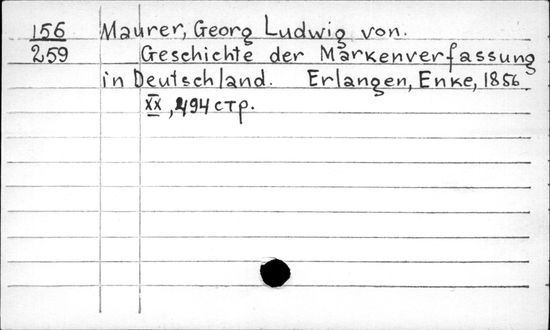 156 Maurer, Georg Ludwig von.
259 Geschichte der Markenverfassung
in Deutschland. Erlangen, Enke, 1856
XX, 494 стр.